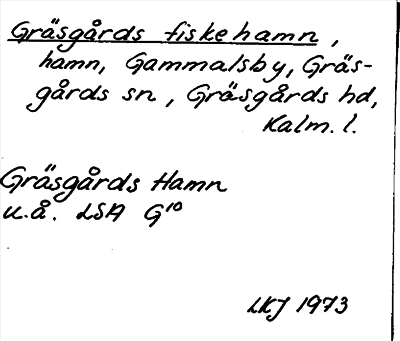 Gräsgårds fiskehamn,
hamn, Gammalsby, Gräs-
gårds sn, Gräsgårds hd,
Kalm. l.
Gräsgårds Hamn
u.å. LSA G10
LKJ 1973